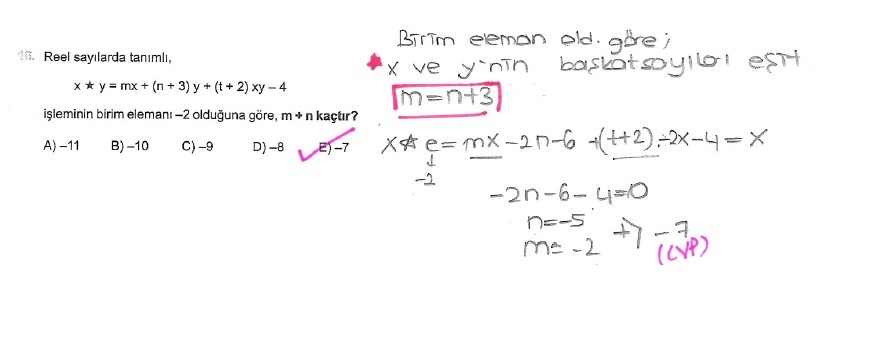 16. Reel sayılarda tanımlı,
x ★ y = mx + (n + 3) y + (t + 2) xy – 4
işleminin birim elemanı –2 olduğuna göre, m + n kaçtır?
A) –11 B) –10 C) –9 D) –8 E) –7
Birim eleman old. göre;
★ x ve y'nin başkatsayıları eşit
m=n+3
x★ e = mx -2n-6 +(t+2).-2x-4 = x
↓
-2
-2n-6-4=0
n=-5
m= -2
+ -7
(CVP)